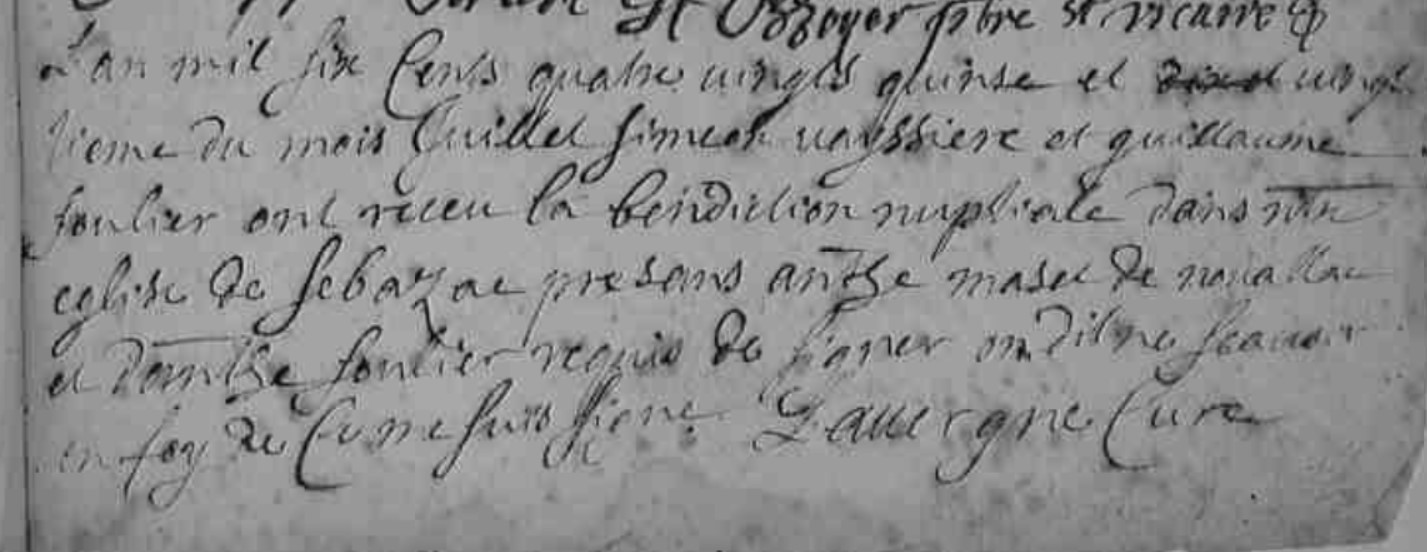 St Ozzoyer pbre et vicaire
L'an mil six Cents quatre uingts quinse et uingt
tieme du mois Juillet simeon uayssiere et guillaume
soulier ont receu la bendiction nuptiale dans nre
eglise de sebazac presans anthe masel de
et soulier requis de signer ont dit ne scauoir
en foy de Ce me suis signe Lauergne Cure